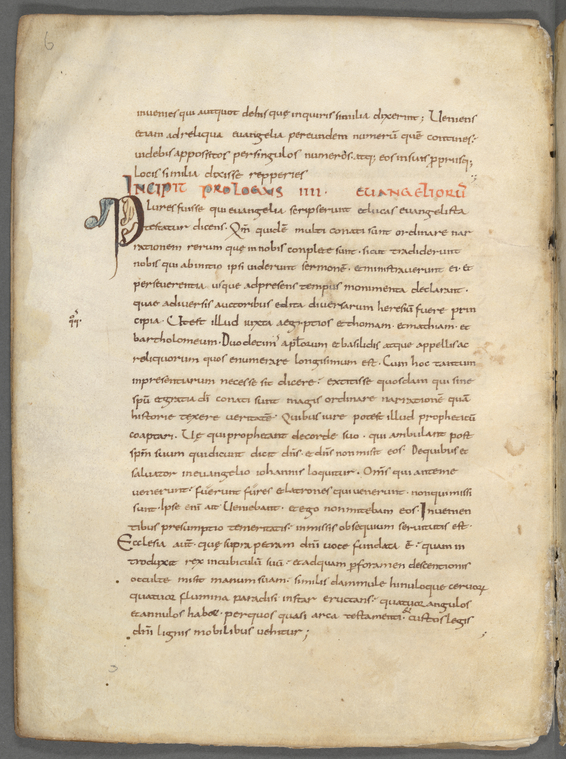 6
invenies qui aut quot de his que inquiris similia dixerint; Veniens
etiam ad reliqua euangelia per eundem numerū quē contines;
uidebis appositos per singulos numeros. atq; eos insuis ꝓprusq;
locis similia dixisse repperies
INCIPIT PROLOGUS IIII. EUANGELIORŪ
PLures fuisse qui euangelia scripserunt et lucas euangelista
testatur dicens. Qm̄ quidē multi conati sunt ordinare nar
rationem rerum que in nobis conplete sunt. sicut tradiderunt
nobis qui abinitio ipsi uiderunt sermonē. et ministrauerunt ei et
perseuerentia usque ad presens tempus monumenta declarant.
quae adiuersis auctoribus edita diuersarum heresiū fuere prin
cipia. Ut est illud iuxta aegyptios et thomam. et mathiam. et
bartholomeum. Duodecim apłorum et basilidis atque appellis ac
reliquorum quos enumerare longisimum est. Cum hoc tantum
inpresentiarum necesse sit dicere. extitisse quosdam qui sine
spū et gratia dī conati sunt magis ordinare narrationē quā
historie texere ueritatē. Quibus iure potest illud propheticū
coaptari. Ue qui prophetant decorde suo. qui ambulant post
spm̄ suum qui dicunt dicit dn̄s. et dn̄s non misit eos. De quibus et
saluator in euangelio iohannis loquitur. Om̄s qui ante me
uenerunt. fuerunt fures et latrones qui uenerunt. non qui missi
sunt. Ipse enī ait Ueniebant. et ego non mittebam eos. In uenien
tibus presumptio temeritatis. in missis obsequium seruitutis est.
Ecclesia aut̄. que supra petram dn̄i uoce fundata ē. quam in
troduxit rex in cubiculū suū. et ad quam ꝑ foramen descensionis
occulte misit manum suam. similis dammule hinuloque ceruorꝝ
quatuor flumina paradisi instar eructans. quatuor angulos
et anulos habet. per quos quasi arca testamenti. et custos legis
dn̄i lignis mobilibus uehitur;